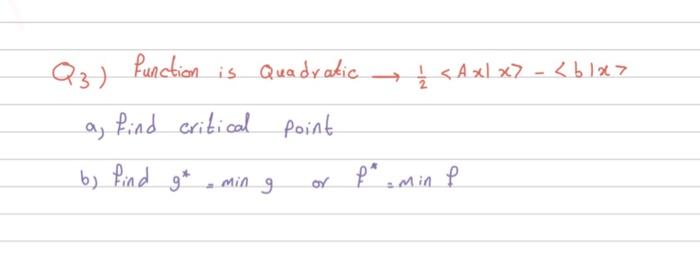 Q3) function is Quadratic → 1/2 <Ax|x> - <b|x>
a) find critical point
b) find g* = min g or f* = min f